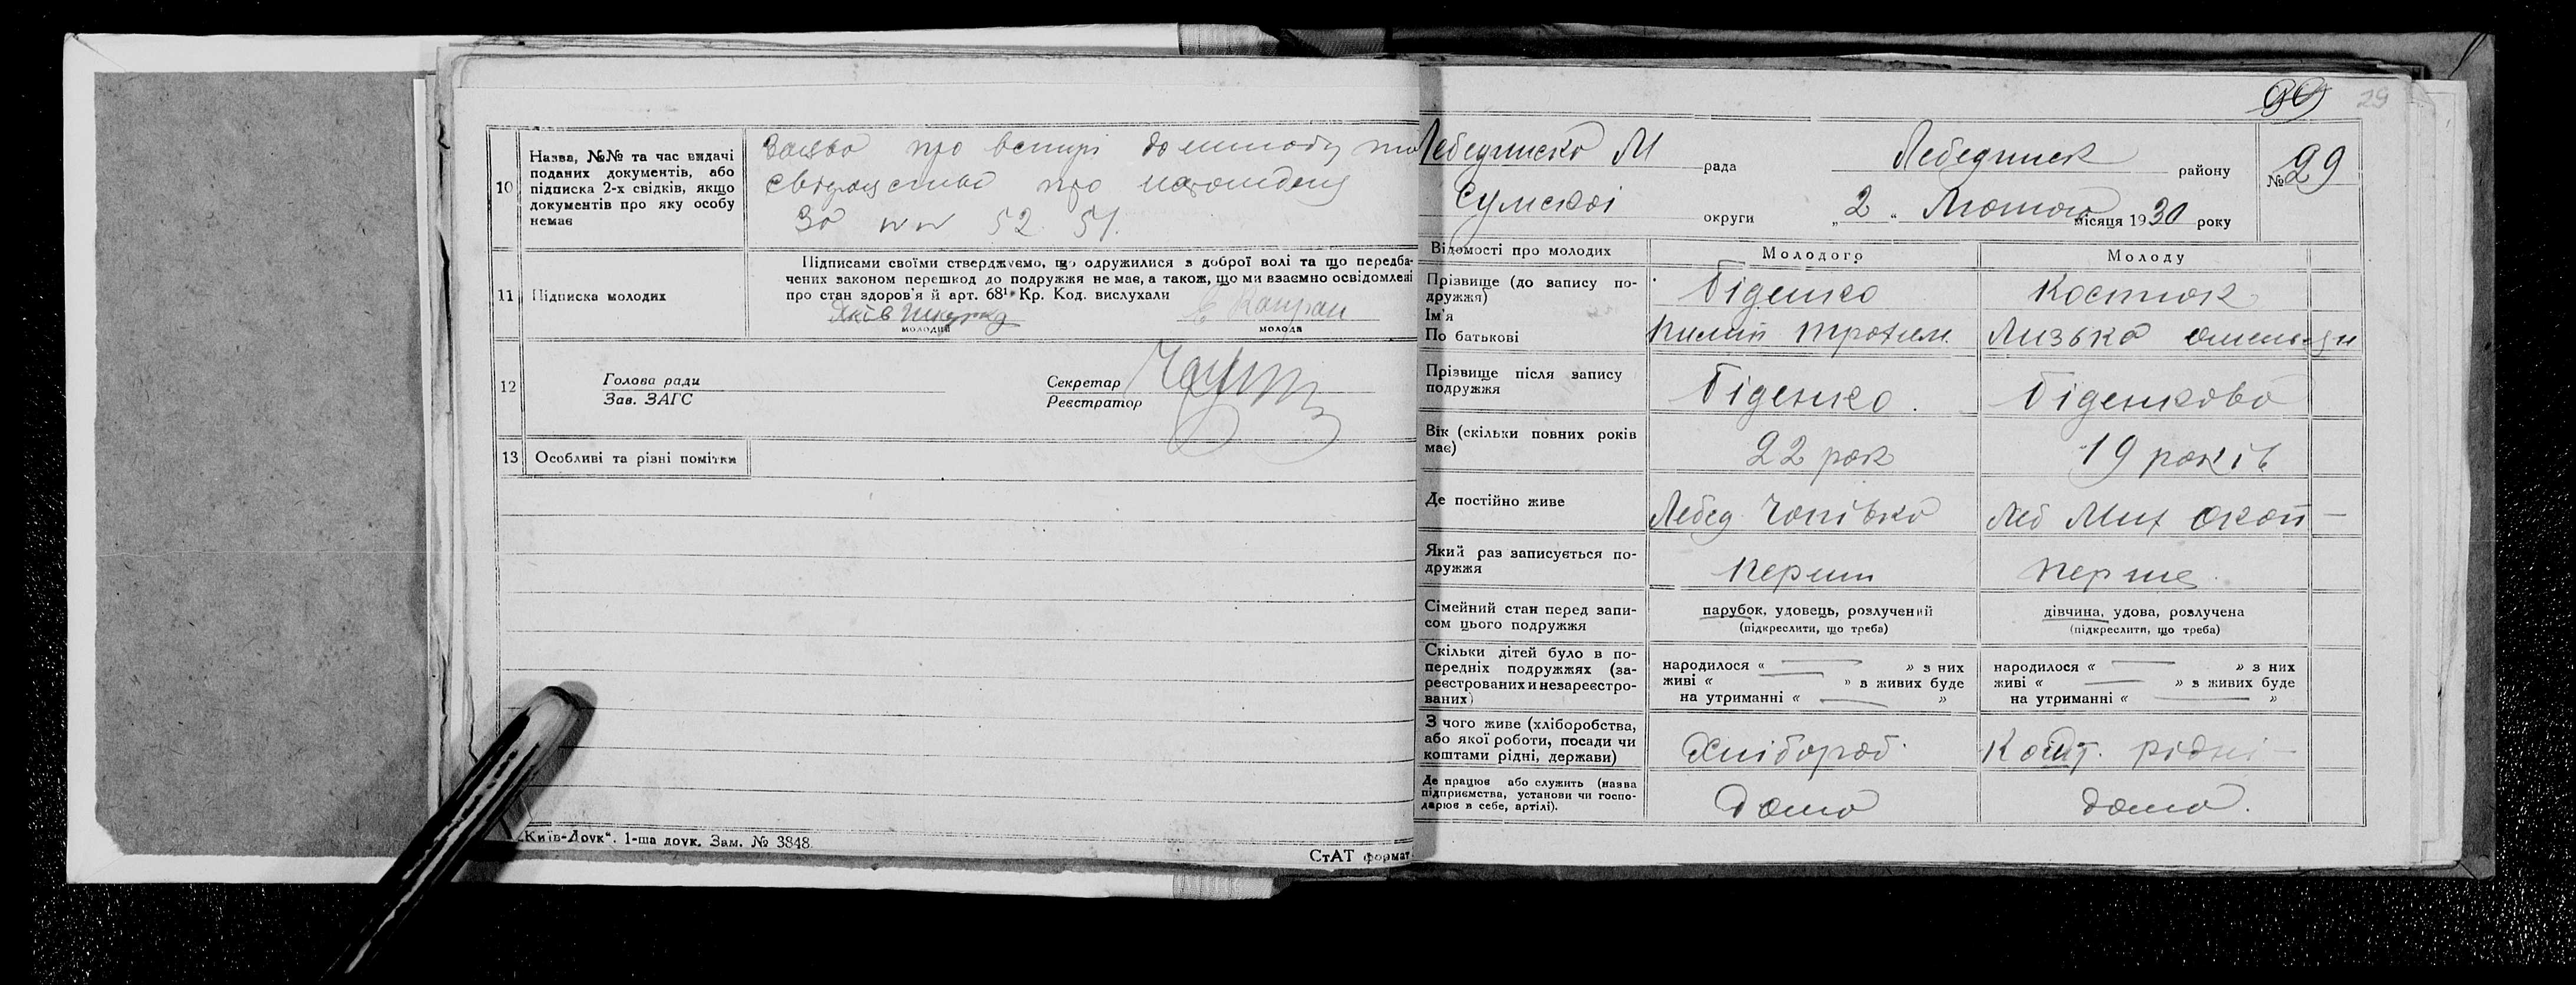 10
Назва, №№ та час видачі
поданих документів, або
підписка 2-х свідків, якщо
документів про яку особу
немає
Заява про вступ до шлюбу та
свідоцтва про народження
За №№ 52 51.
11
Підписка молодих
Підписами своїми стверджуємо, що одружилися з доброї волі та що передба-
чених законом перешкод до подружжя не має, а також, що ми взаємно освідомлені
про стан здоров'я й арт. 68¹ Кр. Код. вислухали
Яків
молодий
молода
12
Голова ради
Зав. ЗАГС
Секретар
Реєстратор
13
Особливі та різні помітки
„Київ-Друк“. 1-ша друк. Зам. № 3848.
СтАТ формат
29
Лебединська М рада
Лебединськ району
№ 29
Сумської округи
„2“ Лютого місяця 1930 року
Відомості про молодих
Молодого
Молоду
Прізвище (до запису по-
дружжя)
Біденко
Костюк
Ім'я
По батькові
Пилип Трохим.
Лизька
Прізвище після запису
подружжя
Біденко.
Біденкова
Вік (скільки повних років
має)
22 рок
19 років
Де постійно живе
Лебед. Чопівка
Леб Мих
Який раз записується по-
дружжя
перший
перше
Сімейний стан перед запи-
сом цього подружжя
парубок, удовець, розлучений
(підкреслити, що треба)
дівчина, удова, розлучена
(підкреслити, що треба)
Скільки дітей було в по-
передніх подружжях (за-
реєстрованих и незареєстро-
ваних)
народилося « — » з них
живі « — » з живих буде
на утриманні « — »
народилося « — » з них
живі « — » з живих буде
на утриманні « — »
З чого живе (хліборобства,
або якої роботи, посади чи
коштами рідні, держави)
Хлібороб.
Кошт. рідні
Де працює або служить (назва
підприємства, установи чи госпо-
дарює в себе, артілі).
Дома
дома.